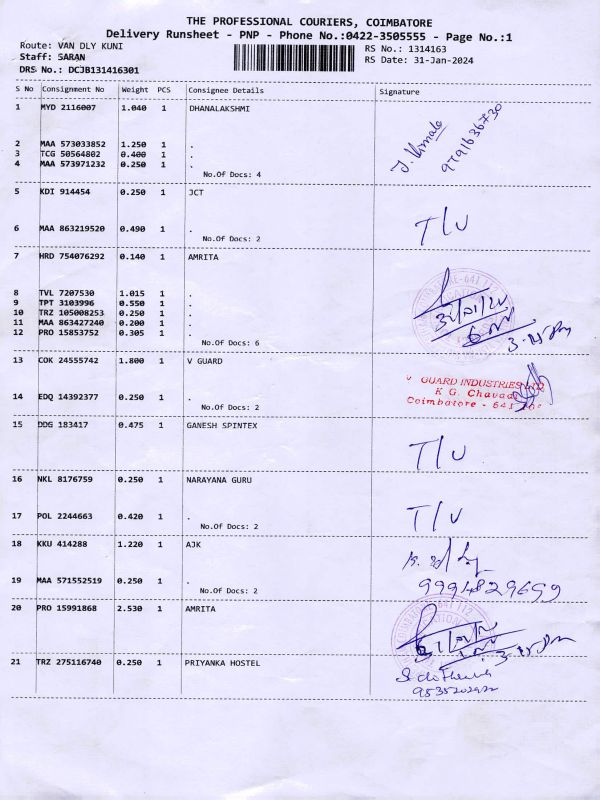 THE PROFESSIONAL COURIERS, COIMBATORE
Delivery Runsheet - PNP - Phone No.:0422-3505555 - Page No.:1
Route: VAN DLY KUNI RS No.: 1314163
Staff: SARAN RS Date: 31-Jan-2024
DRS No.: DCJB131416301
S No Consignment No Weight PCS Consignee Details Signature
1 MYD 2116007 1.040 1 DHANALAKSHMI
9791636730
2 MAA 573033852 1.250 1 .
3 TCG 50564802 0.400 1 .
4 MAA 573971232 0.250 1 .
No.Of Docs: 4
5 KDI 914454 0.250 1 JCT
T/U
6 MAA 863219520 0.490 1 .
No.Of Docs: 2
7 HRD 754076292 0.140 1 AMRITA
8 TVL 7207530 1.015 1 .
9 TPT 3103996 0.550 1 .
10 TRZ 105008253 0.250 1 .
11 MAA 863427240 0.200 1 .
12 PRO 15853752 0.305 1 .
No.Of Docs: 6
13 COK 24555742 1.800 1 V GUARD
V GUARD INDUSTRIES LTD
K G. Chavadi
Coimbatore - 641
14 EDQ 14392377 0.250 1 .
No.Of Docs: 2
15 DDG 183417 0.475 1 GANESH SPINTEX
T/U
16 NKL 8176759 0.250 1 NARAYANA GURU
T/U
17 POL 2244663 0.420 1 .
No.Of Docs: 2
18 KKU 414288 1.220 1 AJK
19 MAA 571552519 0.250 1 .
9994829659
No.Of Docs: 2
20 PRO 15991868 2.530 1 AMRITA
21 TRZ 275116740 0.250 1 PRIYANKA HOSTEL